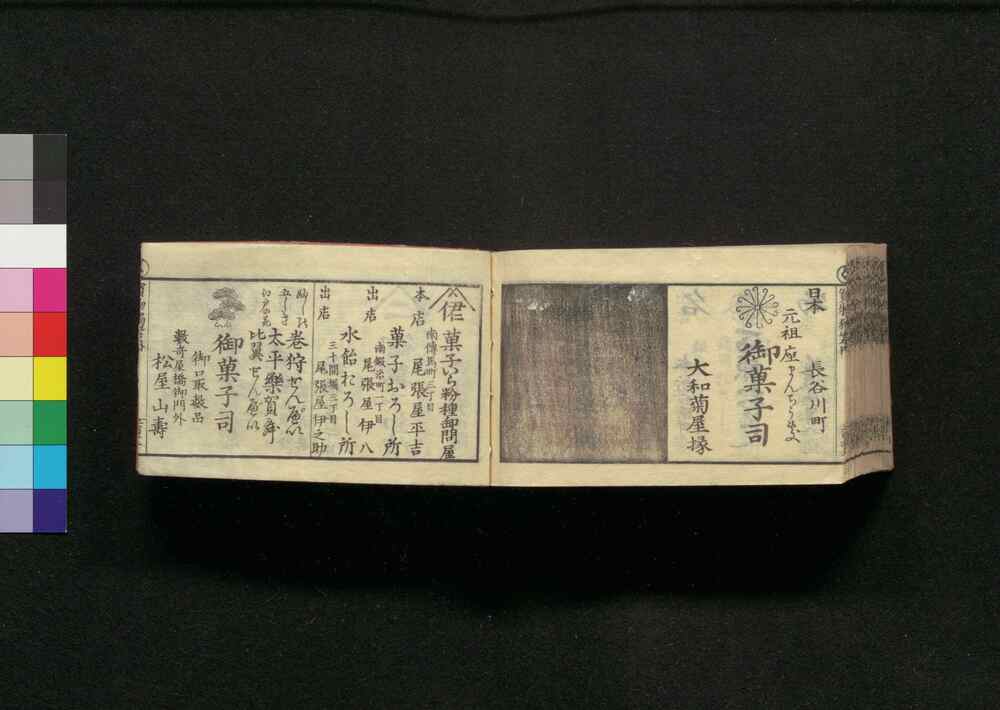 日本
長谷川町
元祖
御菓子司
大和菊屋掾
菓子いろ粉種卸問屋
本店
南傳馬町三丁目
尾張屋平吉
菓子おろし所
出店
南鍛冶町一丁目
尾張屋伊八
水飴おろし所
出店
三十間堀三丁目
尾張屋伊之助
巻狩せんべい
太平樂賀年
比翼せんべい
御菓子司
御口取数品
數寄屋橋御門外
松屋山壽